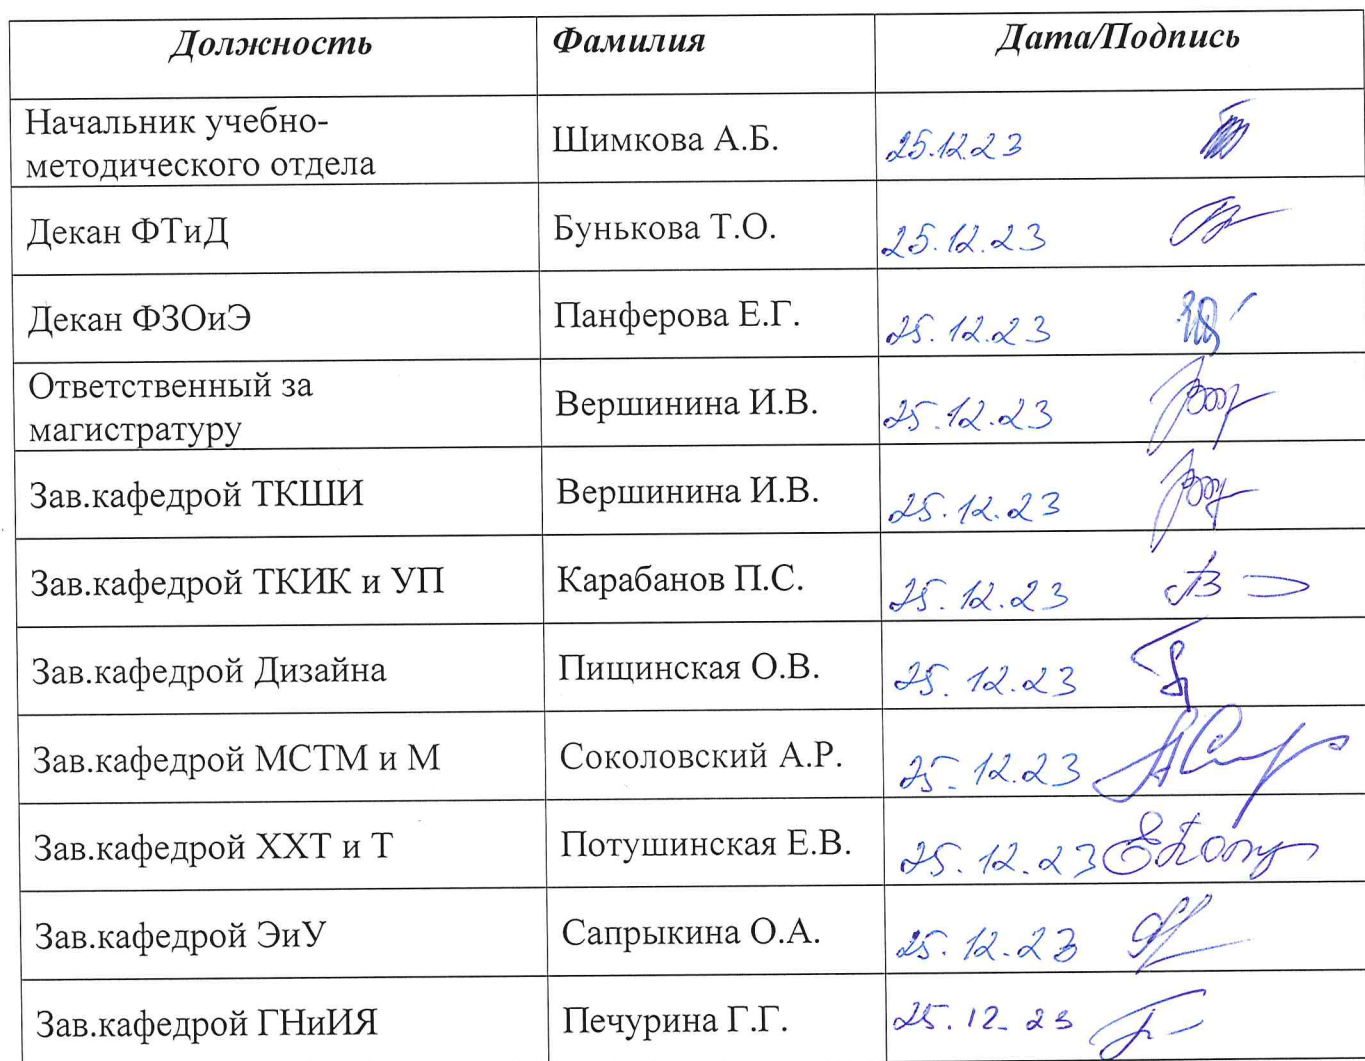 Должность Фамилия Дата/Подпись
Начальник учебно-
методического отдела Шимкова А.Б. 25.12.23
Декан ФТиД Бунькова Т.О. 25.12.23
Декан ФЗОиЭ Панферова Е.Г. 25.12.23
Ответственный за
магистратуру Вершинина И.В. 25.12.23
Зав.кафедрой ТКШИ Вершинина И.В. 25.12.23
Зав.кафедрой ТКИК и УП Карабанов П.С. 25.12.23
Зав.кафедрой Дизайна Пищинская О.В. 25.12.23
Зав.кафедрой МСТМ и М Соколовский А.Р. 25.12.23
Зав.кафедрой ХХТ и Т Потушинская Е.В. 25.12.23
Зав.кафедрой ЭиУ Сапрыкина О.А. 25.12.23
Зав.кафедрой ГНиИЯ Печурина Г.Г. 25.12.23